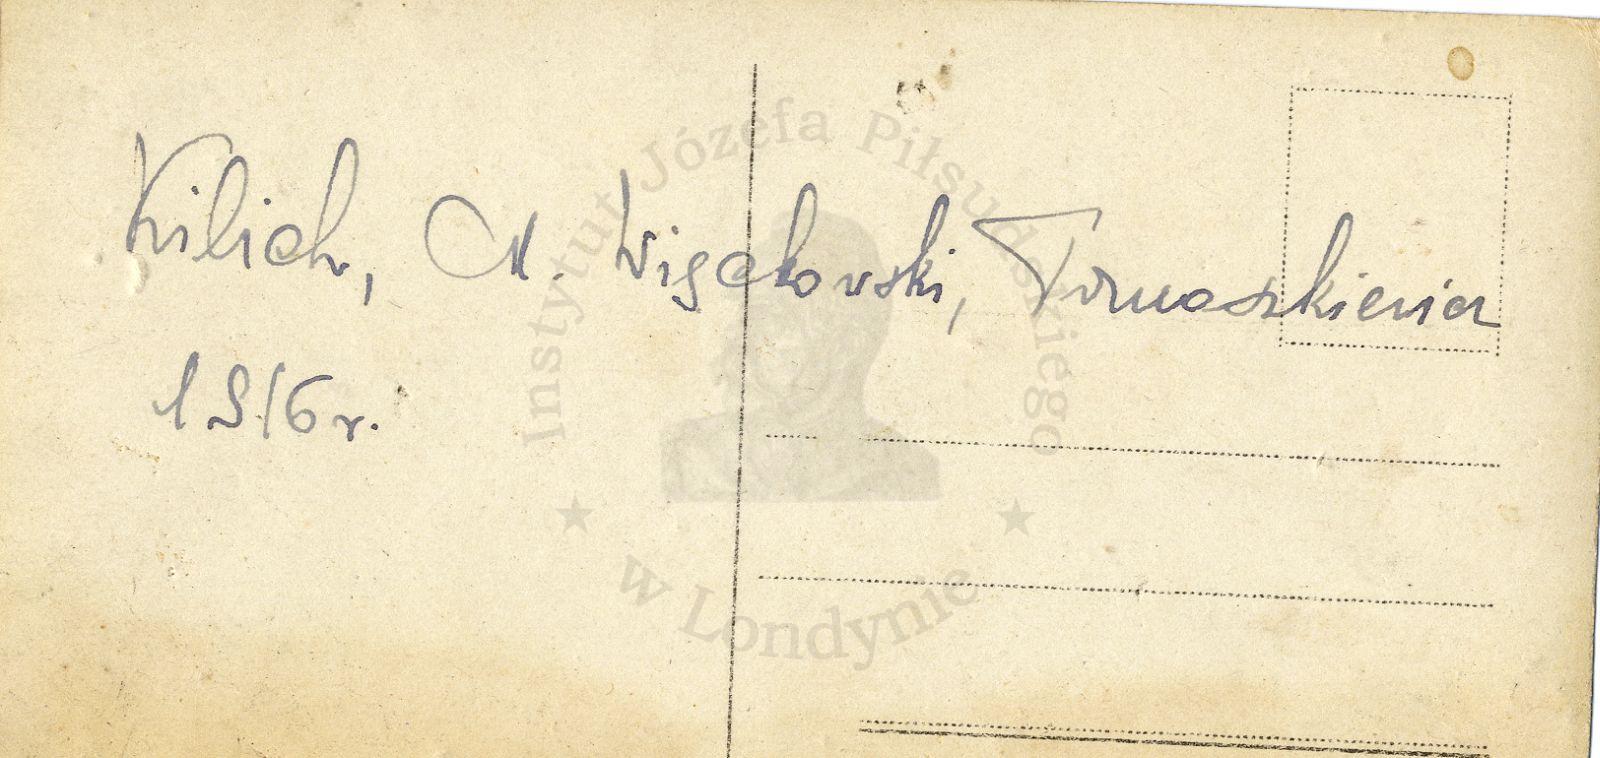 Kilich, M. Więckowski, Tomaszkiewicz
1916 r.
Instytut Józefa Piłsudskiego
w Londynie